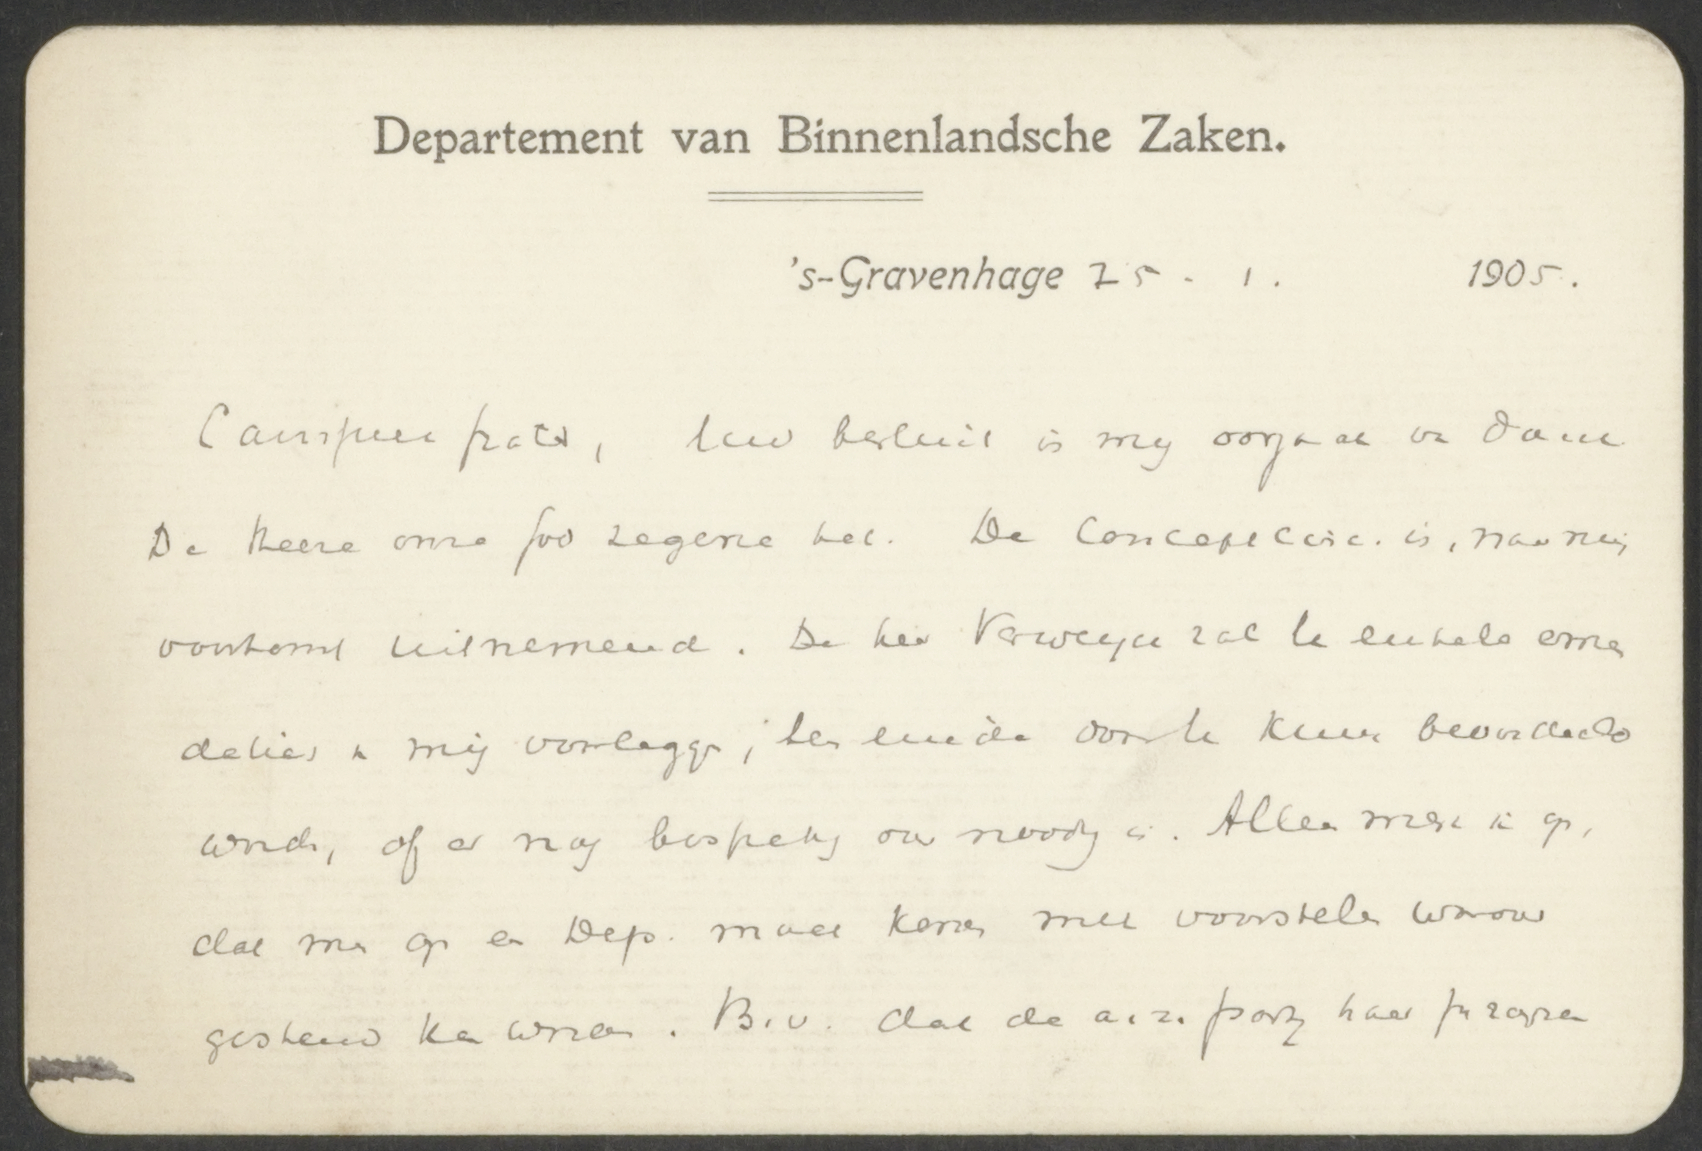 Departement van Binnenlandsche Zaken.
's-Gravenhage 25 - 1. 1905.
Amice frater, Uw besluit is mij oorzaak van dank
De Heere onze God zegene het. De Concept circ. is, naar mij
voorkomt uitnemend. De heer Verweyen zal U enkele
mij voorleggen, ten einde door U kunne beoordeeld
worden, of er nog bespreking over noodig is. Alleen merk ik op,
dat men op een Dep. moet komen met voorstellen waarover
gestemd kan worden. B.v. dat de a.r. partij haar